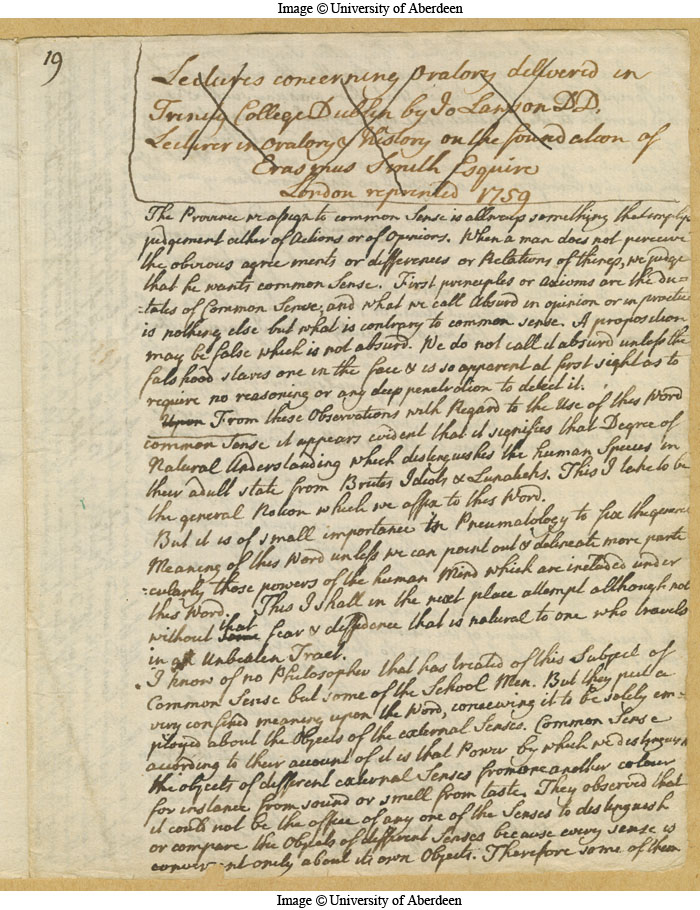 Image © University of Aberdeen
19
Lectures concerning oratory delivered in
Trinity College Dublin by Jo Lawson DD.
Lecturer in oratory & History on the foundation of
Erasmus Smith Esquire
London reprinted 1759
The Province we assign to common Sense is allways something that implys
judgement either of Actions or of Opinions. When a man does not perceive
the obvious agreements or differences or Relations of things, we judge
that he wants common Sense. First principles or axioms are the dic-
-tates of Common Sense, and what we call absurd in opinion or in practice
is nothing else but what is contrary to common sense. A proposition
may be false which is not absurd. We do not call it absurd unless the
falshood stares one in the face & is so apparent at first sight as to
require no reasoning or any deep penetration to detect it.
Upon From these Observations with Regard to the Use of this Word
common Sense it appears evident that it signifies that Degree of
Natural Understanding which distinguishes the human Species in
their adult state from Brutes Ideots & Lunaticks. This I take to be
the general Notion which we affix to this Word.
But it is of small importance in Pneumatology to fix the general
Meaning of this Word unless we can point out & delineate more parti
-cularly those powers of the human Mind which are included under
this Word. This I shall in the next place attempt although not
without some that fear & diffidence that is natural to one who travels
in an Unbeaten Tract.
I know of no Philosopher that has treated of this Subject of
Common Sense but some of the School Men. But they put a
very confined meaning upon the Word, conceiving it to be solely em-
ployed about the Objects of the external Senses. Common Sense
according to their account of it is that Power by which we distinguish
the objects of different external Senses from one another colour
for instance from sound or smell from taste. They observed that
it could not be the office of any one of the Senses to distinguish
or compare the Objects of different Senses because every sense is
conversant only about its own Objects. Therefore some of them
Image © University of Aberdeen